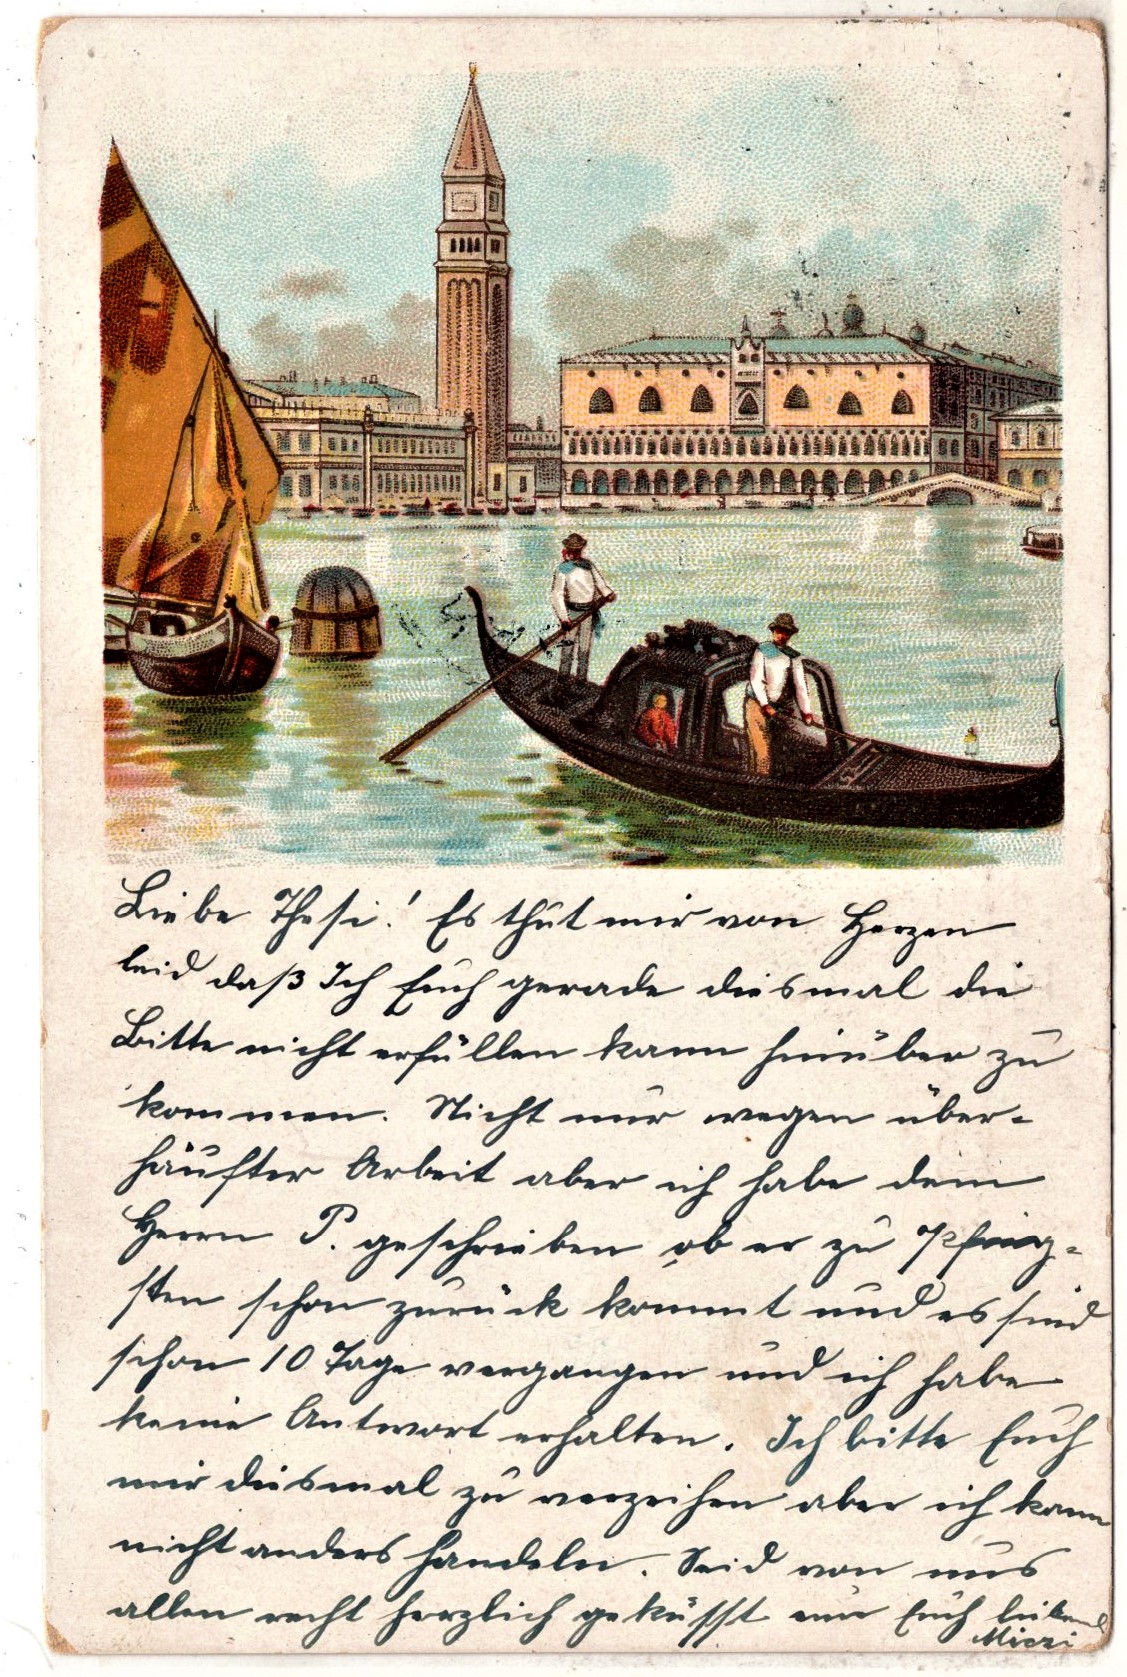 Liebe Thesi! Es thut mir von Herzen
leid daß Ich Euch gerade diesmal die
Bitte nicht erfüllen kann hinüber zu
kommen. Nicht nur wegen über-
häufter Arbeit aber ich habe dem
Herrn P. geschrieben ob er zu Pfing-
sten schon zurück kommt und es sind
schon 10 Tage vergangen und ich habe
keine Antwort erhalten. Ich bitte Euch
mir diesmal zu verzeihen aber ich kann
nicht anders handeln. Seid von uns
allen recht herzlich geküsst Euch
Miczi